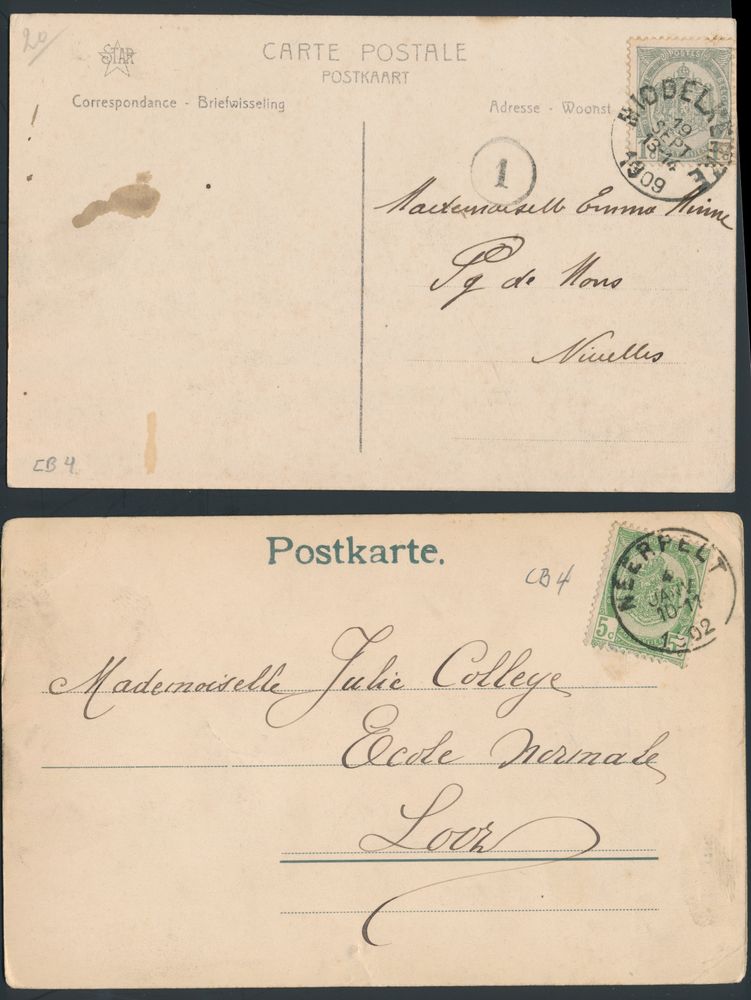 20
STAR
CARTE POSTALE
POSTKAART
Correspondance - Briefwisseling
Adresse - Woonst
POSTES
1c
MIDDELKERKE
19
SEPT
13-14
1909
1
Mademoiselle Emma Minne
Pg de Mons
Nivelles
CB 4
Postkarte.
CB 4
NEERPELT
JANV
10-11
1902
5c
Mademoiselle Julie Colleye
Ecole Normale
Looz